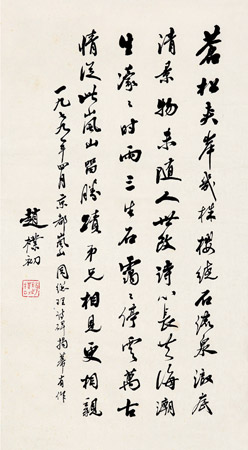 蒼松夾岸幾株櫻繞石流泉澈底
清景物未随人世改詩心長共海潮
生濛〻時雨三生石靄〻停雲萬古
情從此嵐山留勝蹟弟兄相見更相親
一九七九年四月京都嵐山周總理詩碑揭幕有作
趙樸初